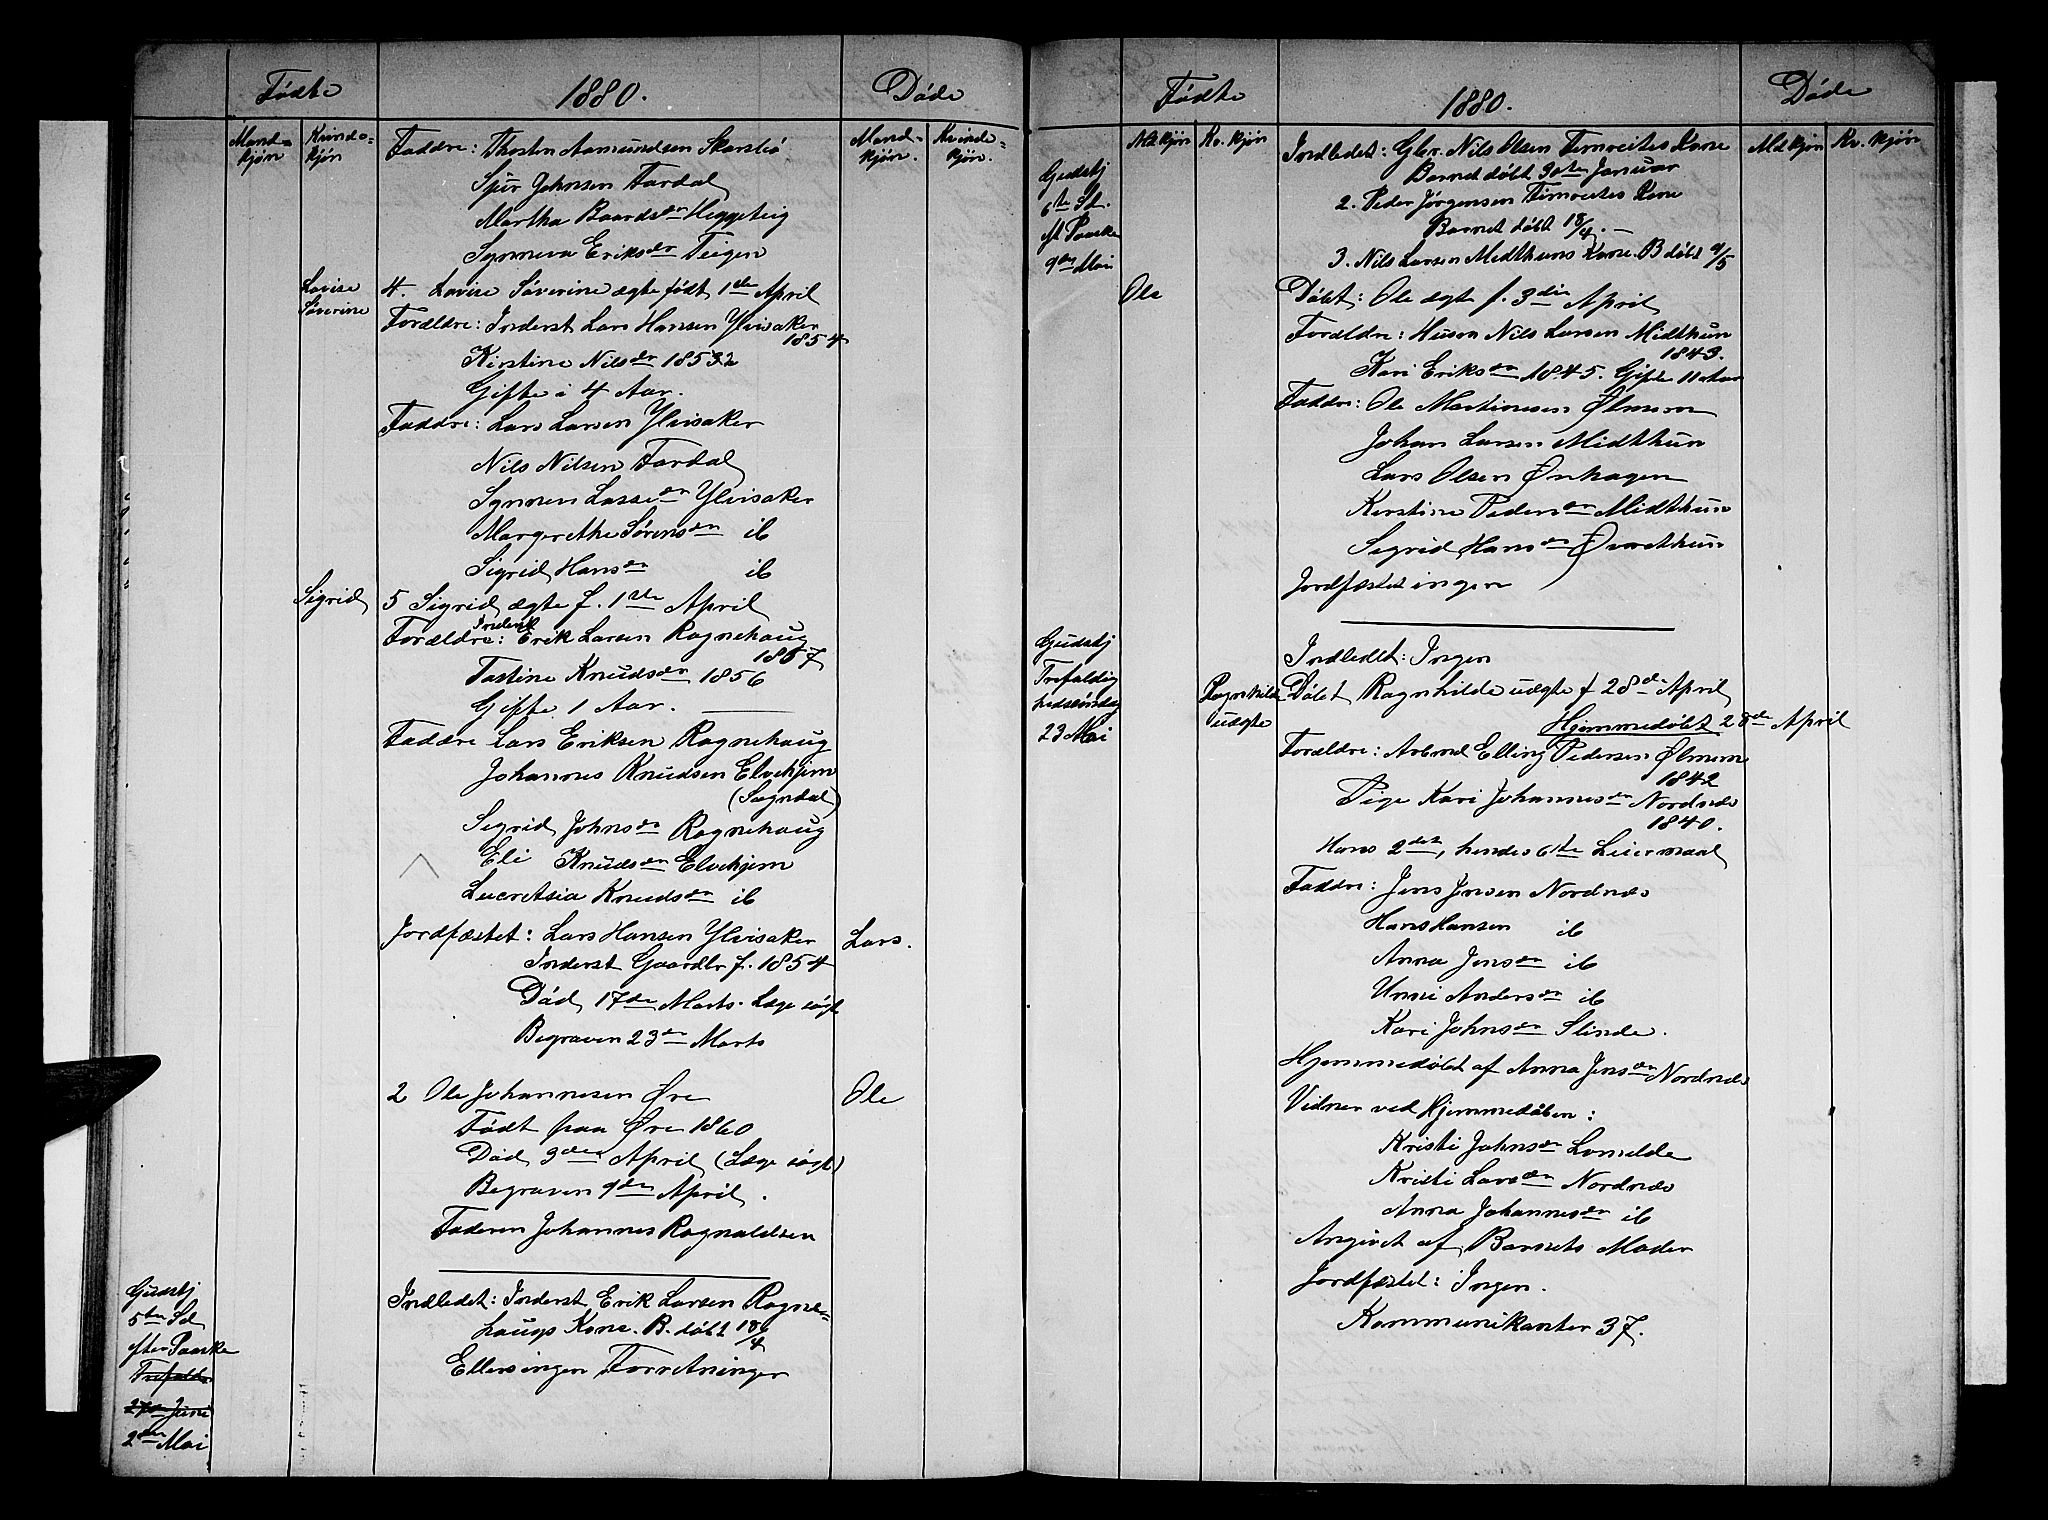 Fødte
1880.
Døde
Mand=
kjøn
Kvinde=
kjøn
Mand=
kjøn.
Kvinde=
kjøn.
Faddre: Thosten Aamundsen Skarsbø
Sjur Johnsen Fardal
Martha Baardsdr Heggeteig
Synneva Eriksdr Teigen
Lovise
Søverine
4. Lovise Søverine ægte født 1ste April
Forældre: Inderst Lars Hansen Ylvisaker
1854
Kirstine Nilsdr 1852
Gifte i 4 Aar.
Faddre: Lars Larsen Ylvisaker
Nils Nilsen Fardal
Synneva Lassedr Ylvisaker
Margrethe Sørensdr ib
Sigrid Hansdr ib
Sigrid
5 Sigrid ægte f. 1ste April
Forældre: Inderst Erik Larsen Ragnehaug
1857
Tastine Knudsdr 1856
Gifte 1 Aar.
Faddre Lars Eriksen Ragnehaug
Johannes Knudsen Elvekjem
(Sogndal)
Sigrid Johnsdr Ragnehaug
Eli Knudsdr Elvekjem
Lucretsia Knudsdr ib
Jordfæstet: Lars Hansen Ylvisaker
Lars.
Inderst Gaardbr f. 1854
Død 17de Marts. Læge søgt
Begraven 23de Marts
2 Ole Johannesen Øre
Ole
Født paa Øre 1860
Død 3die April (Læge søgt)
Begraven 9de April.
Faderen Johannes Ragnaldsen
Gudstj
5te Sd
efter Paaske
Trefoldh
27de Juni
2den Mai
Indledet: Inderst Erik Larsen Ragne=
haugs Kone. B. døbt 18/4
Ellers ingen Forretninger
Fødte
1880.
Døde
Mdkjøn
Kv. kjøn
Mdkjøn
Kv. kjøn
Gudstj
6te Sd.
eft Paaske
9de Mai
Indledet: Gbr. Nils Olsen Fimreites Kone
Barnet døbt 30te Januar
2. Peder Jørgensen Fimreites Kone
Barnet døbt 18/4. —
3. Nils Larsen Midthuns Kone. B døbt 9/5
Ole
Døbt: Ole ægte f. 3die April
Forældre: Husm Nils Larsen Midthun
1843.
Kari Eriksdr 1845. Gifte 11 Aar
Faddre: Ole Martinusen Ølmem
Johan Larsen Midthun
Lars Olsen Ønhagen
Kirstine Pedersdr Midthun
Sigrid Hansdr Øvrethun
Jordfæstet ingen
Gudstj
Trefoldig
hedssøndag
23 Mai
Indledet: Ingen
Ragnhilde
uægte
Døbt Ragnhilde uægte f 28de April
Hjemmedøbt 28de April
Forældre: Arbmd Elling Pedersen Ølmem
1842
Pige Kari Johannesdr Nordnæs
1840.
Hans 2det, hendes 6te Leiermaal
Faddre: Jens Jensen Nordnæs
Hans Hansen ib
Anna Jensdr ib
Unni Andersdr ib
Kari Johnsdr Slinde.
Hjemmedøbt af Anna Jensdr Nordnæs
Vidner ved Hjemmedøben:
Kristi Johnsdr Lomelde
Kristi Larsdr Nordnæs
Anna Johannesdr ib
Angivet af Barnets Moder
Jordfæstet: Ingen.
Kommunikanter 37.